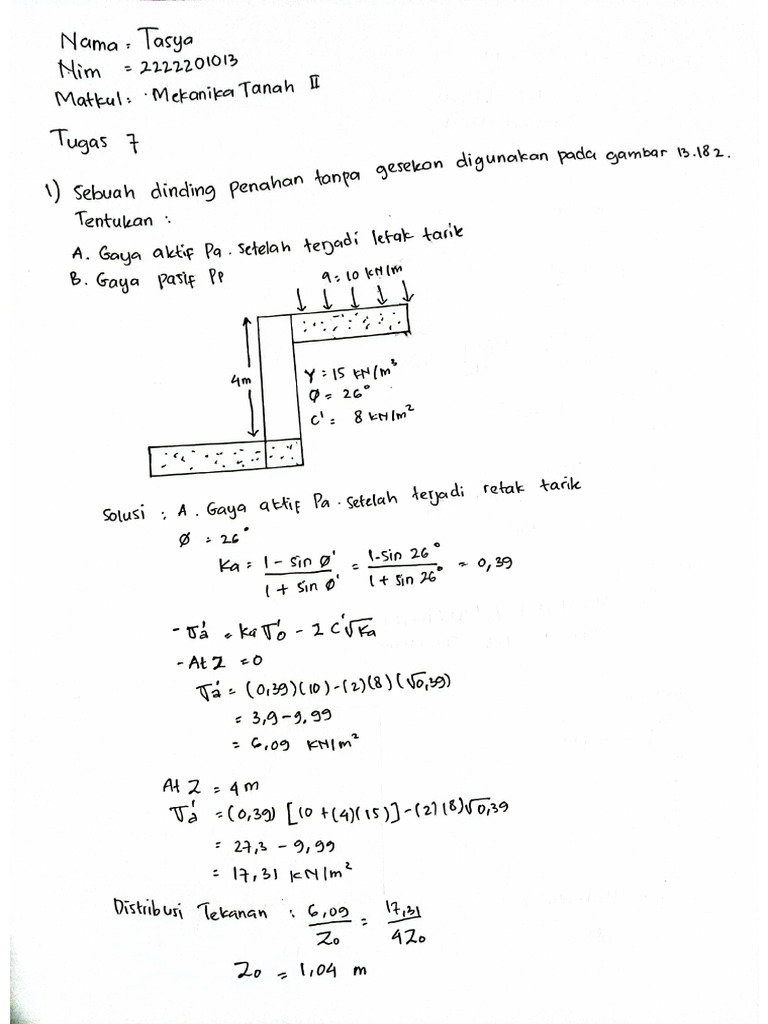 Nama : Tasya
Nim = 2222201013
Matkul : Mekanika Tanah II
Tugas 7
1) Sebuah dinding penahan tanpa gesekan digunakan pada gambar 13.182.
Tentukan :
A. Gaya aktif Pa. setelah terjadi letak tarik
B. Gaya pasif Pp
q = 10 kN/m
4m
γ = 15 kN/m³
Ø = 26°
C' = 8 kN/m²
Solusi : A. Gaya aktif Pa. setelah terjadi retak tarik
Ø = 26°
Ka = 1 - sin Ø' / 1 + sin Ø' = 1 - sin 26° / 1 + sin 26° = 0,39
- σa' = ka σo' - 2 C'√Ka
- At Z = 0
σa' = (0,39)(10) - (2)(8)(√0,39)
= 3,9 - 9,99
= 6,09 KN/m²
At Z = 4 m
σa' = (0,39) [10 + (4)(15)] - (2)(8)√0,39
= 27,3 - 9,99
= 17,31 kN/m²
Distribusi Tekanan : 6,09 / Zo = 17,31 / 4Zo
Zo = 1,04 m